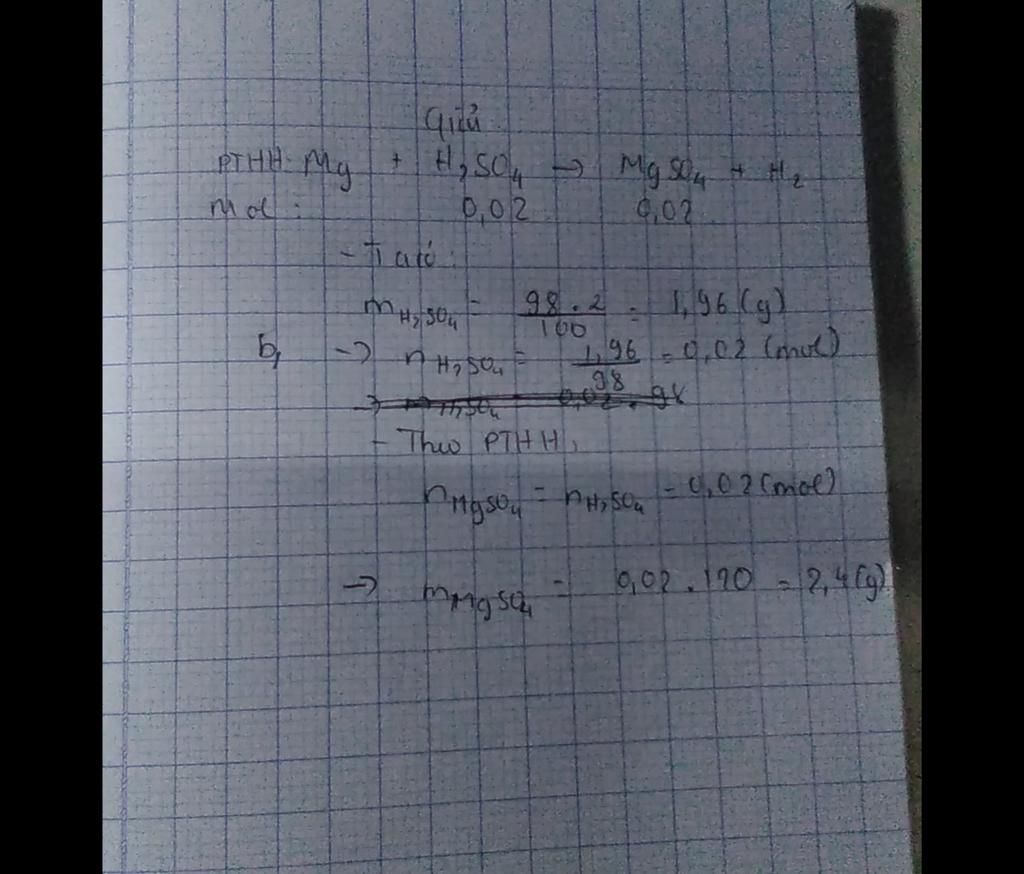 Giải
PTHH: Mg + H₂SO₄ → MgSO₄ + H₂
Mol : 0,02 0,02
- Ta có:
m H₂SO₄ = 98 . 2 / 100 = 1,96 (g)
b, → n H₂SO₄ = 1,96 / 98 = 0,02 (mol)
- Theo PTHH,
n MgSO₄ = n H₂SO₄ = 0,02 (mol)
→ m MgSO₄ = 0,02 . 120 = 2,4 (g)